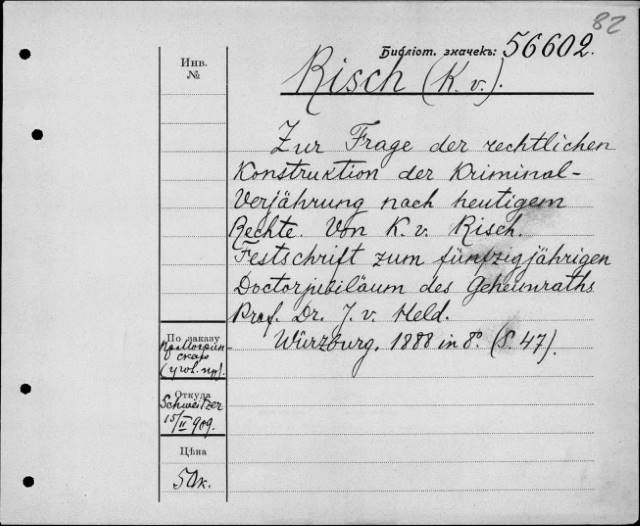 82
Библіот. значекъ: 56602.
Инв.
№
Risch (K. v.).
Zur Frage der rechtlichen
Konstruktion der Kriminal-
Verjährung nach heutigem
Rechte. Von K. v. Risch.
Festschrift zum fünfzigjährigen
Doctorjubiläum des Geheimraths
Prof. Dr. J. v. Held.
Würzburg, 1888 in 8º. (S. 47).
По заказу
(угол. пр.)
Откуда
Schweitzer
15/II 909.
Цѣна